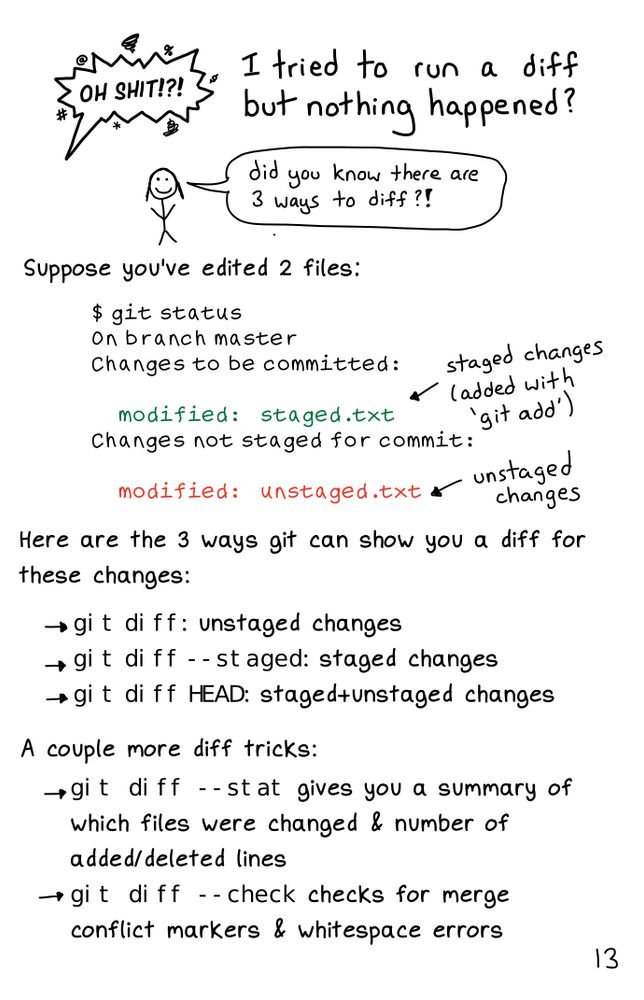 OH SHIT!?!
@
%
#
*
I tried to run a diff
but nothing happened?
did you know there are
3 ways to diff?!
Suppose you've edited 2 files:
$ git status
On branch master
Changes to be committed:
modified: staged.txt
staged changes
(added with
'git add')
Changes not staged for commit:
modified: unstaged.txt
unstaged
changes
Here are the 3 ways git can show you a diff for
these changes:
→ git diff: unstaged changes
→ git diff --staged: staged changes
→ git diff HEAD: staged+unstaged changes
A couple more diff tricks:
→ git diff --stat gives you a summary of
which files were changed & number of
added/deleted lines
→ git diff --check checks for merge
conflict markers & whitespace errors
13